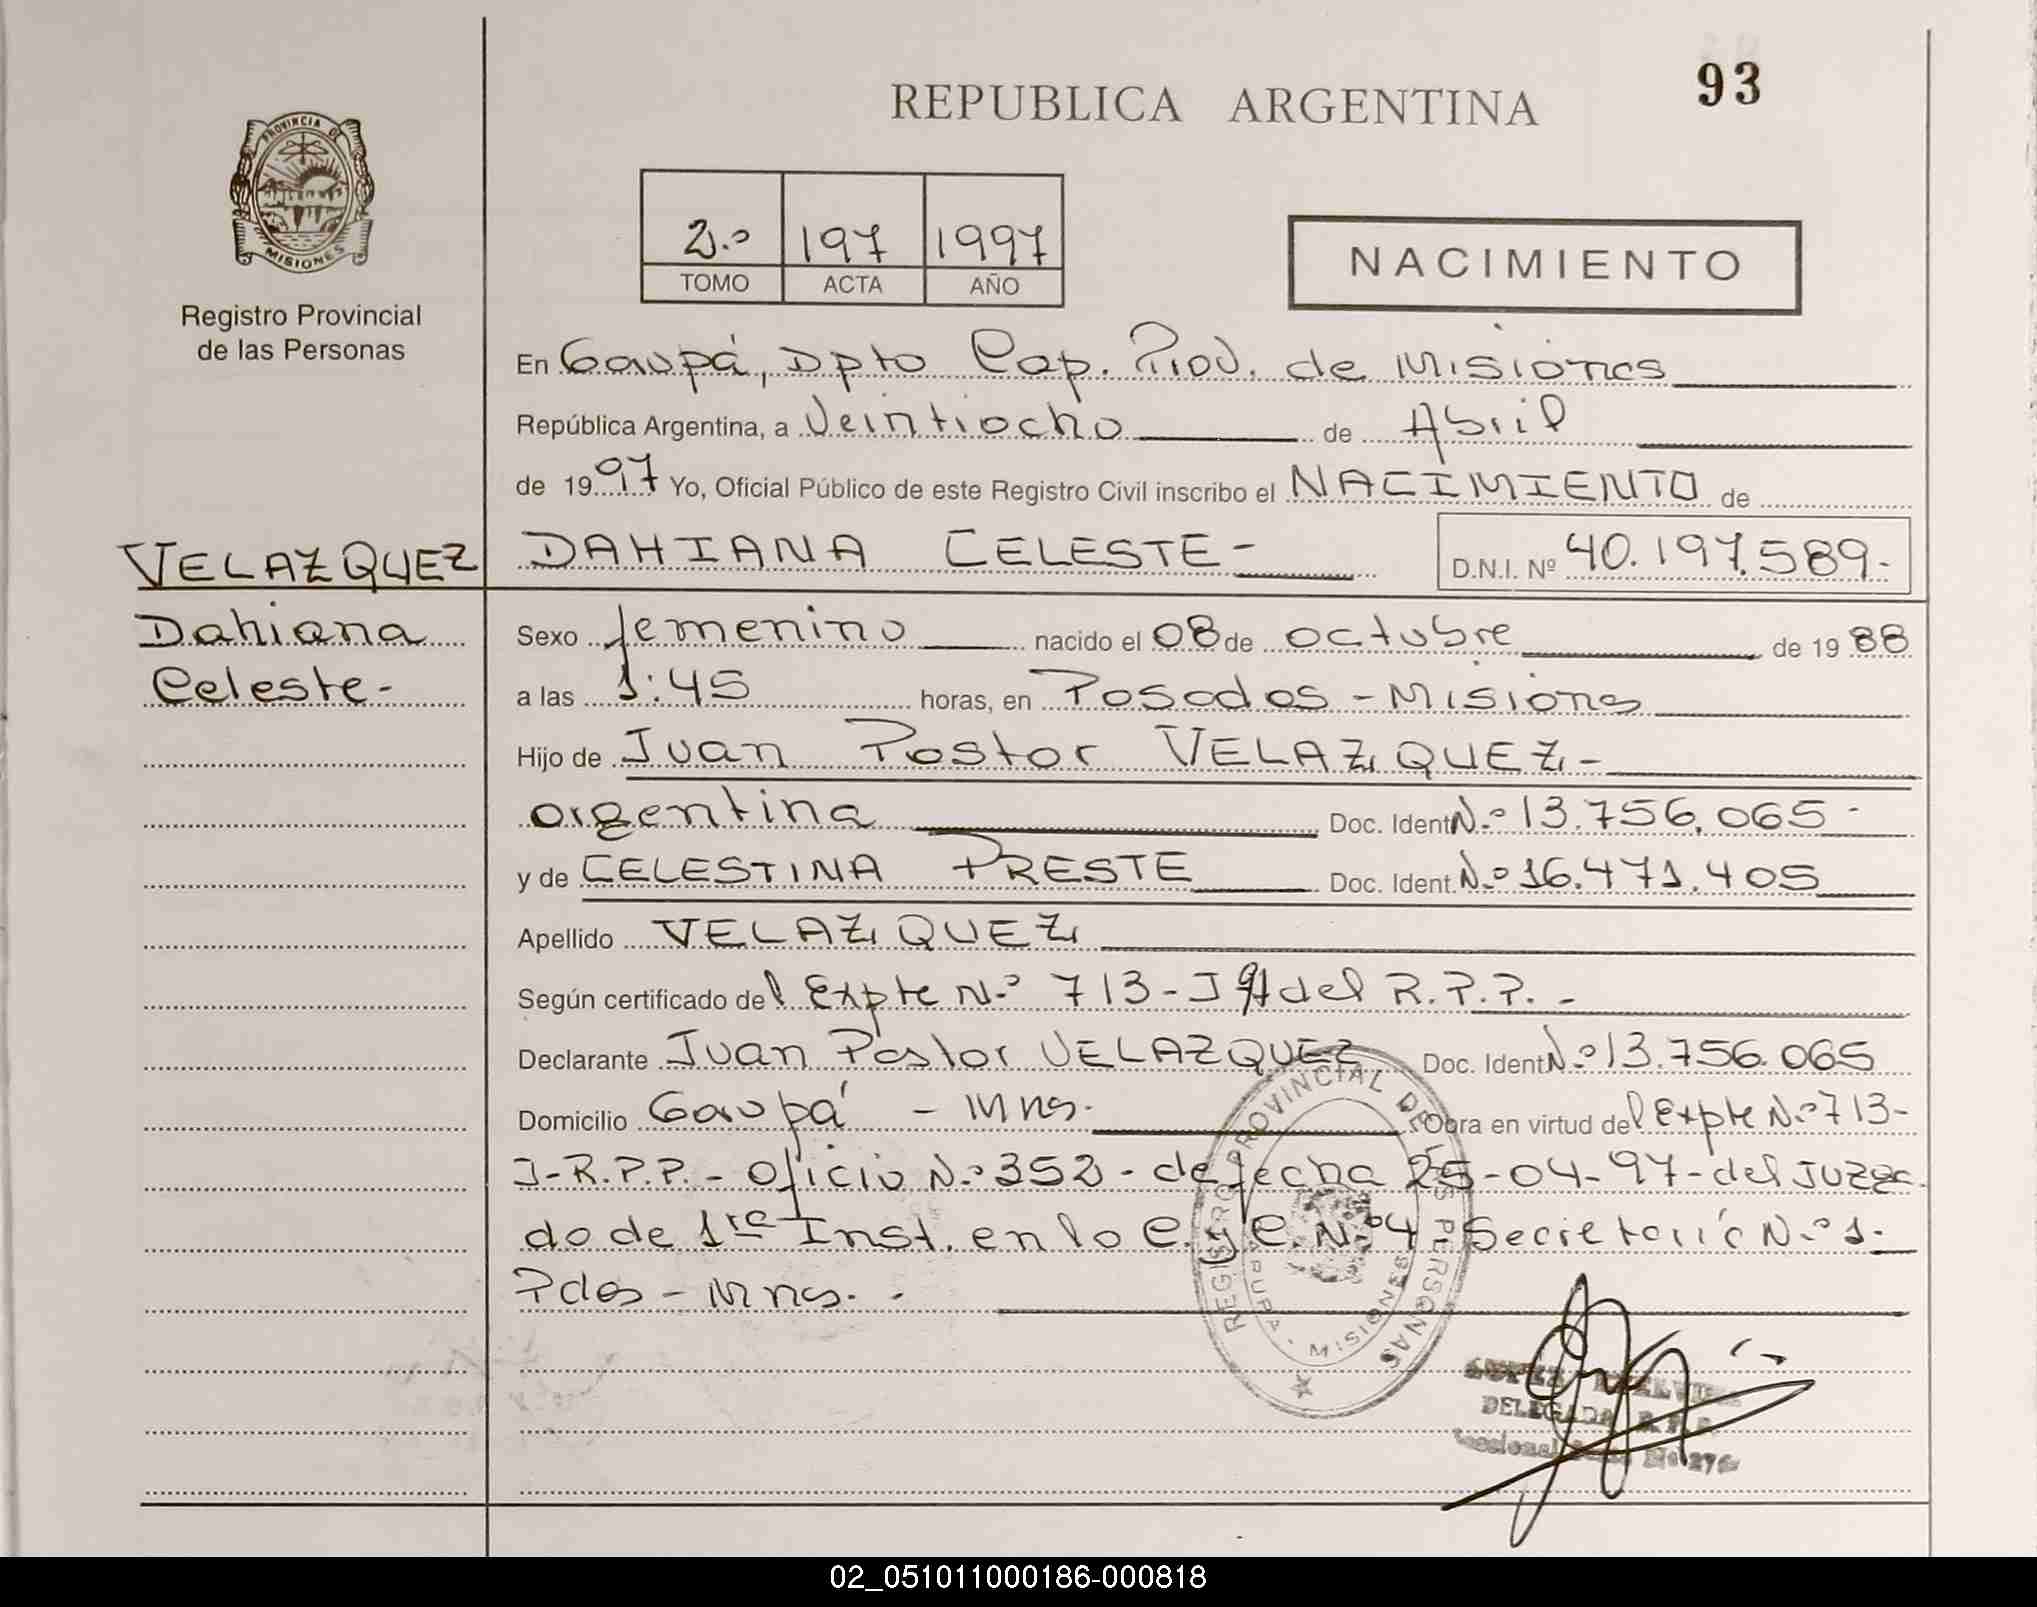 93
REPUBLICA ARGENTINA
PROVINCIA DE
MISIONES
Registro Provincial
de las Personas
2.º 197 1997
TOMO ACTA AÑO
NACIMIENTO
En Garupá, Dpto Cap. Prov. de Misiones
República Argentina, a Veintiocho de Abril
de 1997 Yo, Oficial Público de este Registro Civil inscribo el NACIMIENTO de
VELAZQUEZ
DAHIANA CELESTE- D.N.I. Nº 40.197.589.-
Dahiana
Celeste-
Sexo femenino nacido el 08 de octubre de 1988
a las 1:45 horas, en Posadas - Misiones
Hijo de Juan Pastor VELAZQUEZ-
argentina Doc. Ident. N.º 13.756.065-
y de CELESTINA PRESTE Doc. Ident. N.º 16.471.405
Apellido VELAZQUEZ
Según certificado del Expte N.º 713-J del R.P.P.-
Declarante Juan Pastor VELAZQUEZ Doc. Ident. N.º 13.756.065
Domicilio Garupá - Mnes. Obra en virtud del Expte N.º 713-
J-R.P.P.- Oficio N.º 352- de fecha 25-04-97- del Juzga
do de 1ra Inst. en lo C. y C. N.º 4- Secretaría N.º 1-
Pdas - Mnes.-
REGISTRO PROVINCIAL DE LAS PERSONAS
MISIONES
DELEGADA R. P. P.
02_051011000186-000818